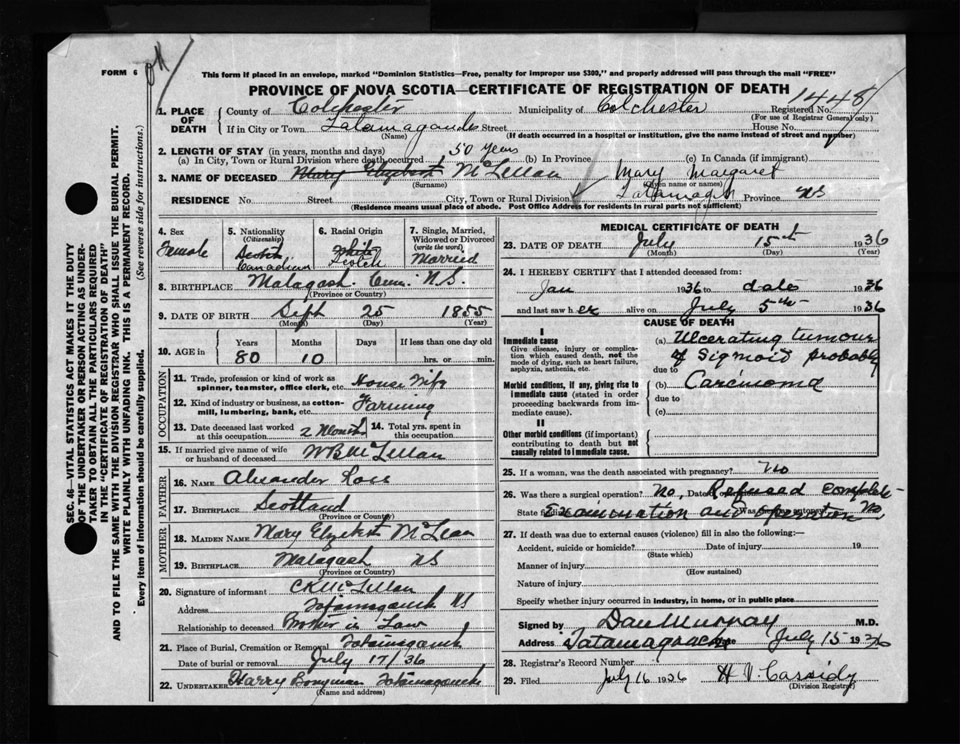 FORM 6
This form if placed in an envelope, marked "Dominion Statistics—Free, penalty for improper use $300," and properly addressed will pass through the mail "FREE"
PROVINCE OF NOVA SCOTIA—CERTIFICATE OF REGISTRATION OF DEATH
1. PLACE OF DEATH County of Colchester Municipality of Colchester Registered No. 1448
(For use of Registrar General only)
If in City or Town Tatamagouche Street House No.
(Name) (If death occurred in a hospital or institution, give the name instead of street and number)
2. LENGTH OF STAY (in years, months and days)
(a) In City, Town or Rural Division where death occurred 50 Years (b) In Province (c) In Canada (if immigrant)
3. NAME OF DECEASED Mary Elizabeth McLellan Mary Margaret
(Surname) (Given name or names)
RESIDENCE No. Street City, Town or Rural Division Tatamagouche Province NS
(Residence means usual place of abode. Post Office Address for residents in rural parts not sufficient)
4. Sex Female
5. Nationality (Citizenship) Scotch Canadian
6. Racial Origin White Scotch
7. Single, Married, Widowed or Divorced (write the word) Married
8. BIRTHPLACE Malagash Cum. N.S.
(Province or Country)
9. DATE OF BIRTH Sept 25 1855
(Month) (Day) (Year)
10. AGE in Years 80 Months 10 Days If less than one day old hrs. or min.
OCCUPATION
11. Trade, profession or kind of work as spinner, teamster, office clerk, etc. House Wife
12. Kind of industry or business, as cotton-mill, lumbering, bank, etc. Farming
13. Date deceased last worked at this occupation 2 Months
14. Total yrs. spent in this occupation
15. If married give name of wife or husband of deceased W B McLellan
FATHER
16. NAME Alexander Ross
17. BIRTHPLACE Scotland
(Province or Country)
MOTHER
18. MAIDEN NAME Mary Elizabeth McLean
19. BIRTHPLACE Malagash NS
(Province or Country)
20. Signature of informant C K McLellan
Address Tatamagouche NS
Relationship to deceased Brother in Law
21. Place of Burial, Cremation or Removal Tatamagouche
Date of burial or removal July 17/36
22. UNDERTAKER Harry Bonyman Tatamagouche
(Name and address)
MEDICAL CERTIFICATE OF DEATH
23. DATE OF DEATH July 15th 1936
(Month) (Day) (Year)
24. I HEREBY CERTIFY that I attended deceased from:
Jan 1936 to date 1936
and last saw her alive on July 5th 1936
CAUSE OF DEATH
I
Immediate cause
Give disease, injury or complication which caused death, not the mode of dying, such as heart failure, asphyxia, asthenia, etc.
(a) Ulcerating tumour of Sigmoid probably
due to
Morbid conditions, if any, giving rise to immediate cause (stated in order proceeding backwards from immediate cause).
(b) Carcinoma
due to
(c)
II
Other morbid conditions (if important) contributing to death but not causally related to immediate cause.
25. If a woman, was the death associated with pregnancy? No
26. Was there a surgical operation? No, Date of Refused complete
State findings Examination and operation Was there autopsy? No
27. If death was due to external causes (violence) fill in also the following:—
Accident, suicide or homicide? Date of injury 19
(State which)
Manner of injury
(How sustained)
Nature of injury
Specify whether injury occurred in industry, in home, or in public place
Signed by Dan Murray M.D.
Address Tatamagouche Date July 15 1936
28. Registrar's Record Number
29. Filed July 16 1936 H. V. Cassidy
(Division Registrar)
SEC. 46—VITAL STATISTICS ACT MAKES IT THE DUTY
OF THE UNDERTAKER OR PERSON ACTING AS UNDER-
TAKER TO OBTAIN ALL THE PARTICULARS REQUIRED
IN THE "CERTIFICATE OF REGISTRATION OF DEATH"
AND TO FILE THE SAME WITH THE DIVISION REGISTRAR WHO SHALL ISSUE THE BURIAL PERMIT.
WRITE PLAINLY WITH UNFADING INK. THIS IS A PERMANENT RECORD.
Every item of Information should be carefully supplied. (See reverse side for instructions.)